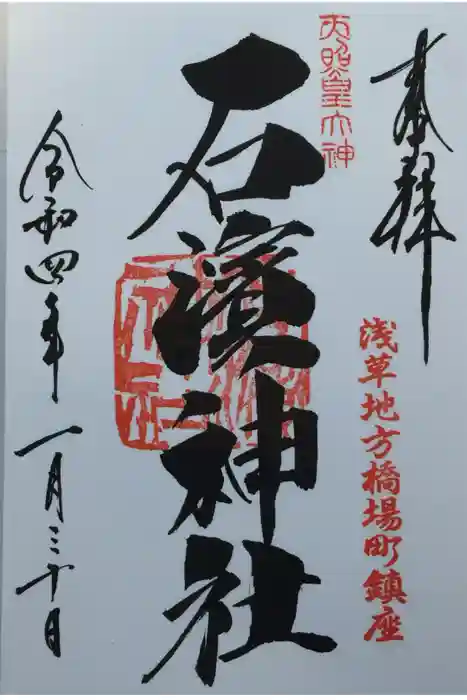 奉拝
浅草地方橋場町鎮座
天照皇大神
石濱神社
令和四年一月三十日